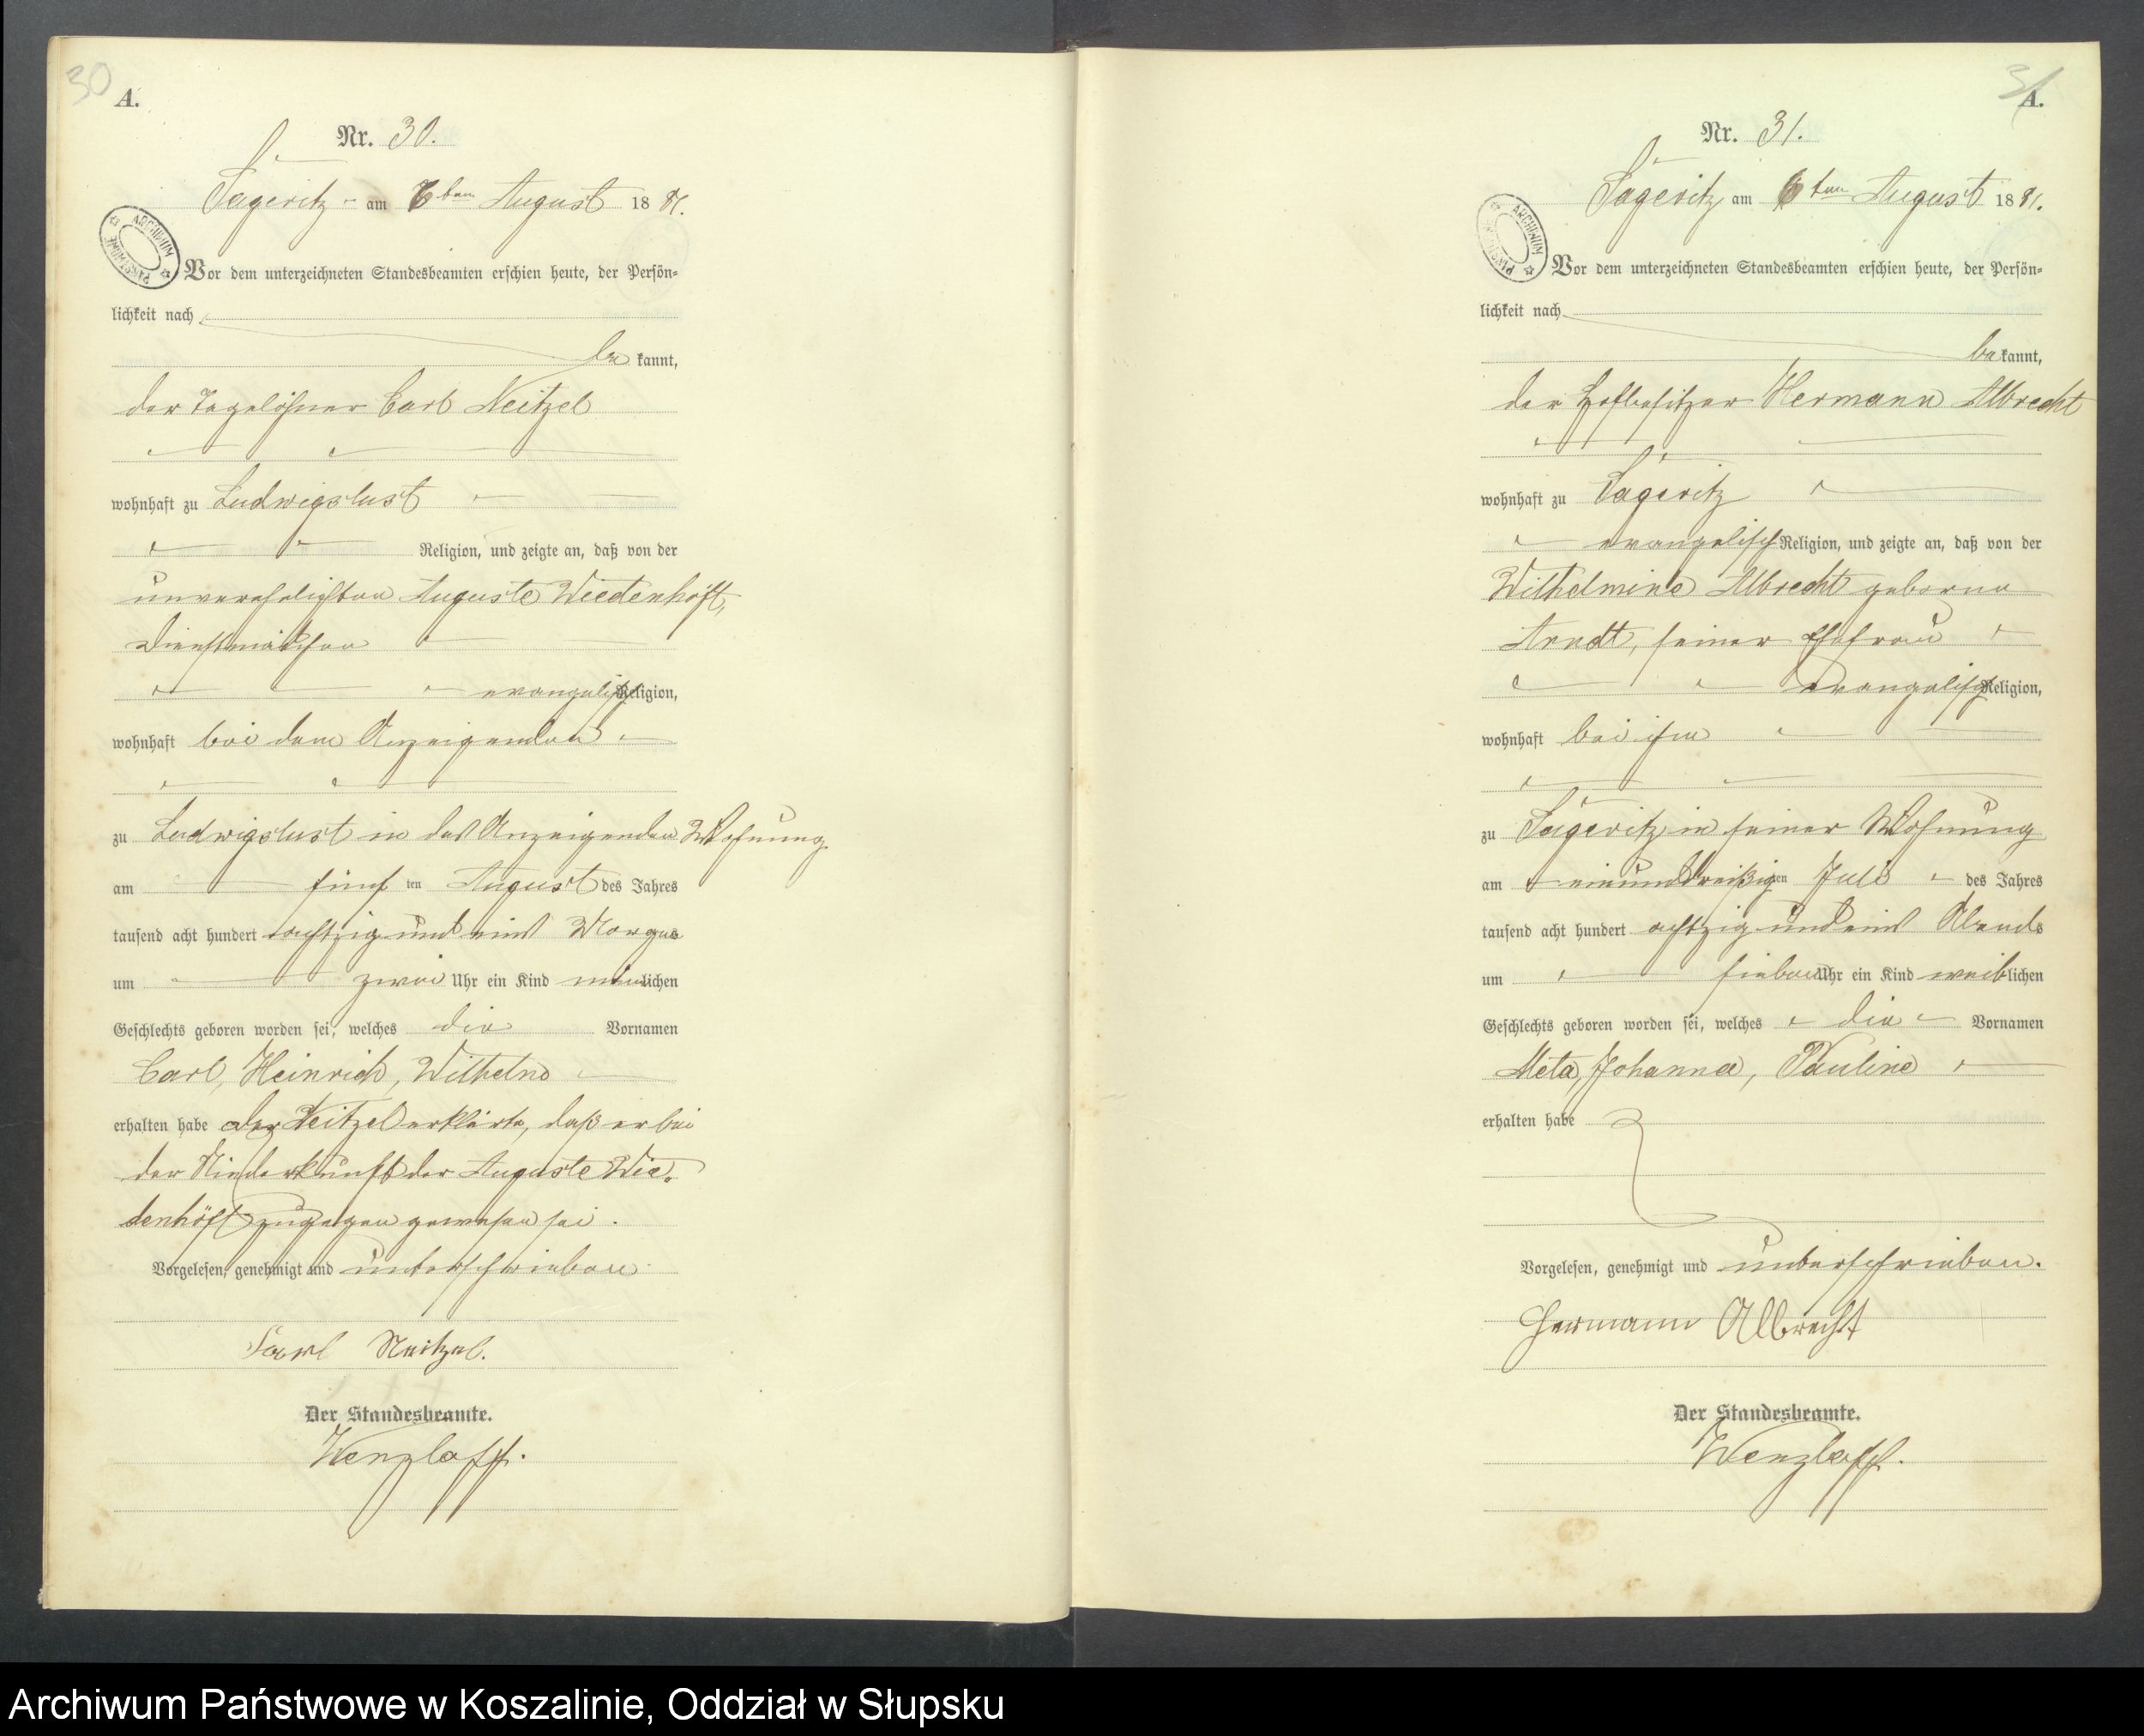 30
A.
Nr. 30.
Sageritz am 6ten August 1881.
ARCHIWUM PAŃSTWOWE
Vor dem unterzeichneten Standesbeamten erschien heute, der Persön-
lichkeit nach
be kannt,
der Tagelöhner Carl Neitzel
wohnhaft zu Ludwigslust
Religion, und zeigte an, daß von der
unverehelichten Auguste Wiedenhöft,
Dienstmädchen
evangelisch Religion,
wohnhaft bei dem Anzeigenden
zu Ludwigslust in des Anzeigenden Wohnung
am fünften August des Jahres
tausend acht hundert achtzig und eins Morgens
um zwei Uhr ein Kind männlichen
Geschlechts geboren worden sei, welches die Vornamen
Carl, Heinrich, Wilhelm
erhalten habe der Neitzel erklärte, daß er bei
der Niederkunft der Auguste Wie-
denhöft zugegen gewesen sei.
Vorgelesen, genehmigt und unterschrieben
Carl Neitzel.
Der Standesbeamte.
Wenzlaff.
31
A.
Nr. 31.
Sageritz am 6ten August 1881.
ARCHIWUM PAŃSTWOWE
Vor dem unterzeichneten Standesbeamten erschien heute, der Persön-
lichkeit nach
bekannt,
der Hofbesitzer Hermann Albrecht
wohnhaft zu Sageritz
evangelisch Religion, und zeigte an, daß von der
Wilhelmine Albrecht geborne
Arndt, seiner Ehefrau
evangelisch Religion,
wohnhaft bei ihm
zu Sageritz in seiner Wohnung
am einunddreißigten Juli des Jahres
tausend acht hundert achtzig und eins Abends
um sieben Uhr ein Kind weiblichen
Geschlechts geboren worden sei, welches die Vornamen
Meta, Johanna, Pauline
erhalten habe
Vorgelesen, genehmigt und unterschrieben.
Hermann Albrecht
Der Standesbeamte.
Wenzlaff.
Archiwum Państwowe w Koszalinie, Oddział w Słupsku